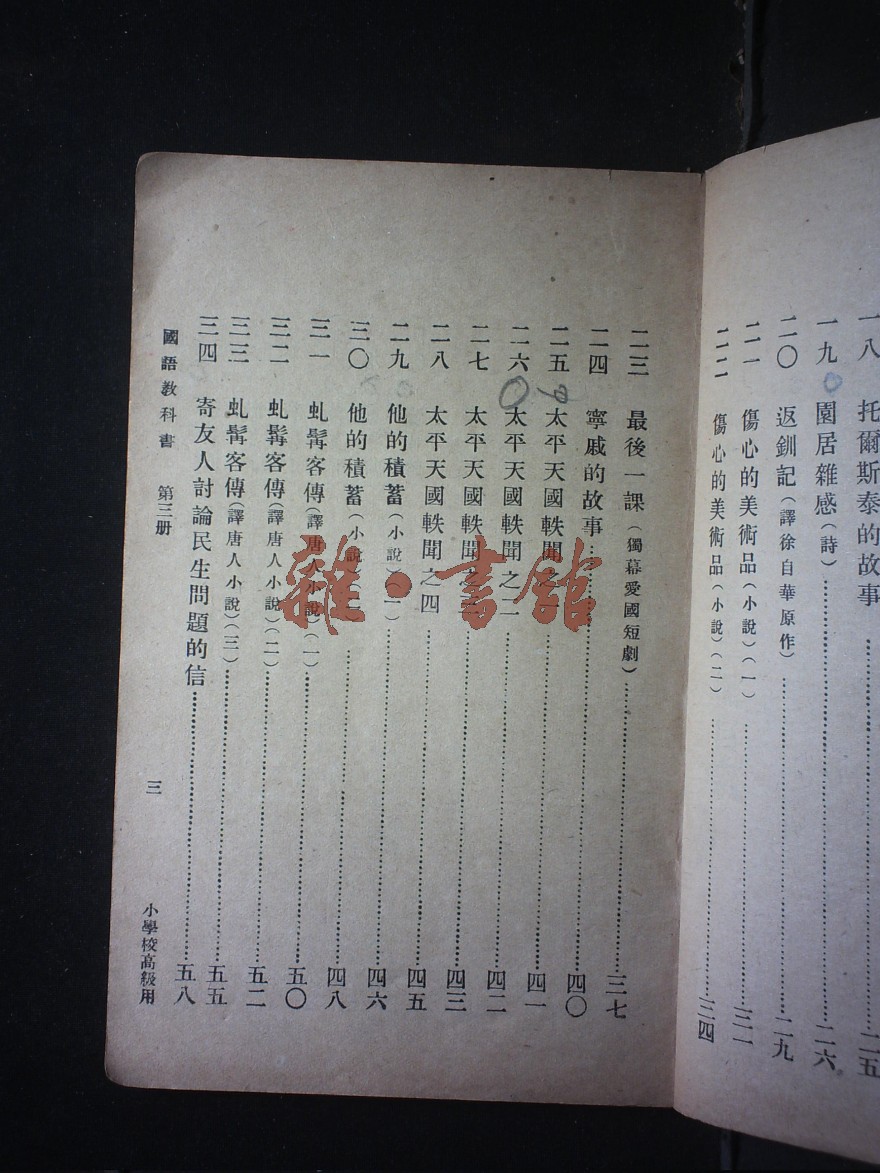 一八 托爾斯泰的故事………二五
一九 園居雜感(詩)………二六
二〇 返釧記(譯徐自華原作)………二九
二一 傷心的美術品(小說)(一)………三一
二二 傷心的美術品(小說)(二)………三四
二三 最後一課(獨幕愛國短劇)………三七
二四 寧戚的故事………四〇
二五 太平天國軼聞之………四一
二六 太平天國軼聞之二………四二
二七 太平天國軼聞之………四三
二八 太平天國軼聞之四………四五
二九 他的積蓄(小說)(一)………四六
三〇 他的積蓄(小說)………四八
三一 虬髯客傳(譯唐人小說)(一)………五〇
三二 虬髯客傳(譯唐人小說)(二)………五二
三三 虬髯客傳(譯唐人小說)(三)………五五
三四 寄友人討論民生問題的信………五八
國語教科書 第三册 三 小學校高級用
雜·書館